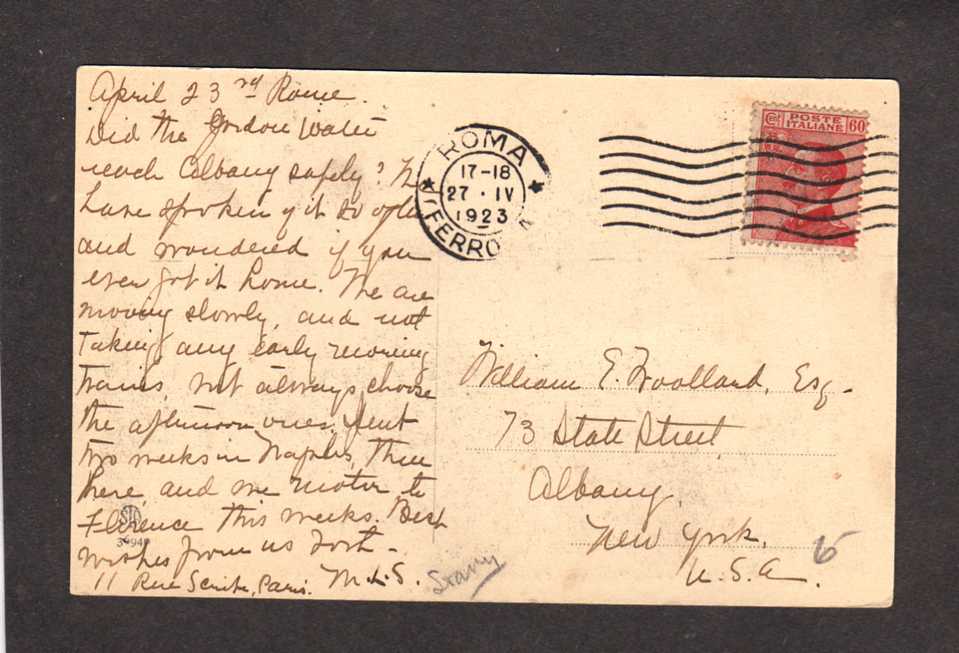 April 23rd Rome.
Did the Jordon Water
reach Albany safely? We
have spoken of it so often
and wondered if you
ever got it home. We are
moving slowly, and not
taking any early morning
trains, but always choose
the afternoon ones. Spent
two weeks in Naples, three
here and we motor to
Florence this weeks. Best
wishes from us both -
11 Rue Scribe, Paris. M.L.S.
39940
ROMA
17-18
27 · IV
1923
FERROVIA
POSTE
ITALIANE
60
William E. Woollard, Esq-
73 State Street
Albany,
New York,
U.S.A.